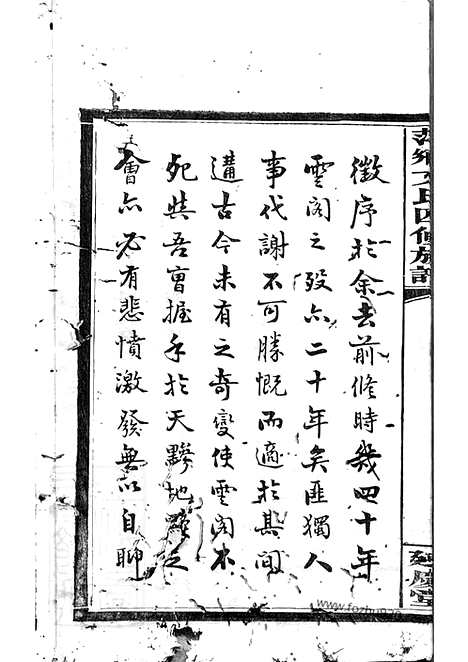 萍鄉文氏四修族譜
徵序於余去前修時幾四十年
雲閣之歿亦二十年矣匪獨人
事代謝不可勝慨而適於其間
遘古今未有之奇變使雲閣不
死與吾曹握手於天黪地之
會亦必有悲憤激發無以自聊